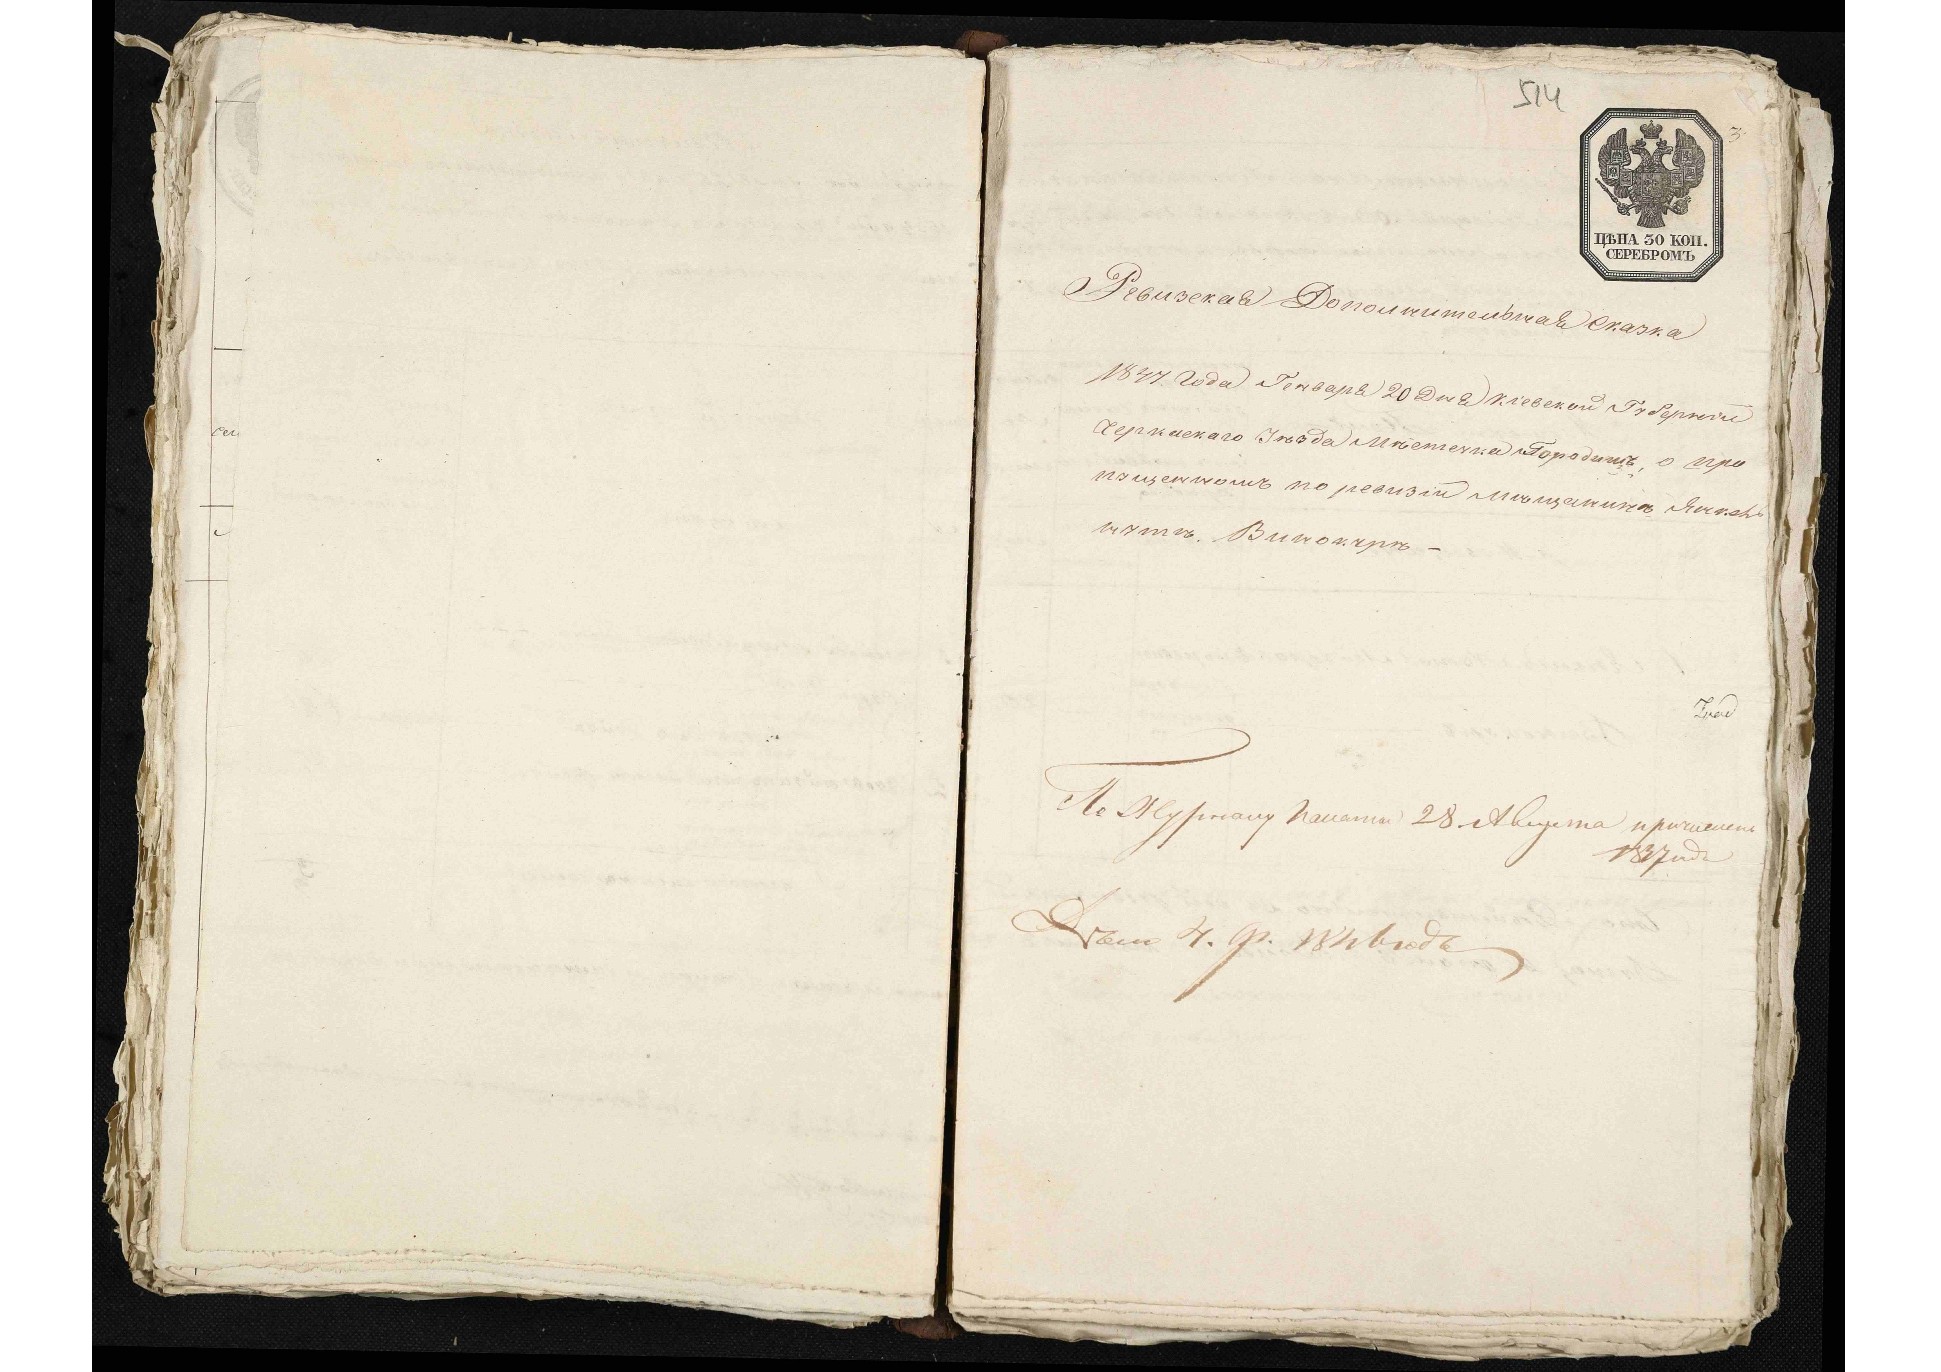 514
3
ЦѢНА 30 КОП.
СЕРЕБРОМЪ
Ревизская Дополнительная сказка
1847 Года Генваря 20 Дня Кіевской Губерніи
Черкаскаго Уѣзда Мѣстечка Городищъ, о про
пущенномъ по ревизіи мѣщанинѣ
Винокурѣ –
По Журналу Палаты 28 Августа причислены
1847 года
4.